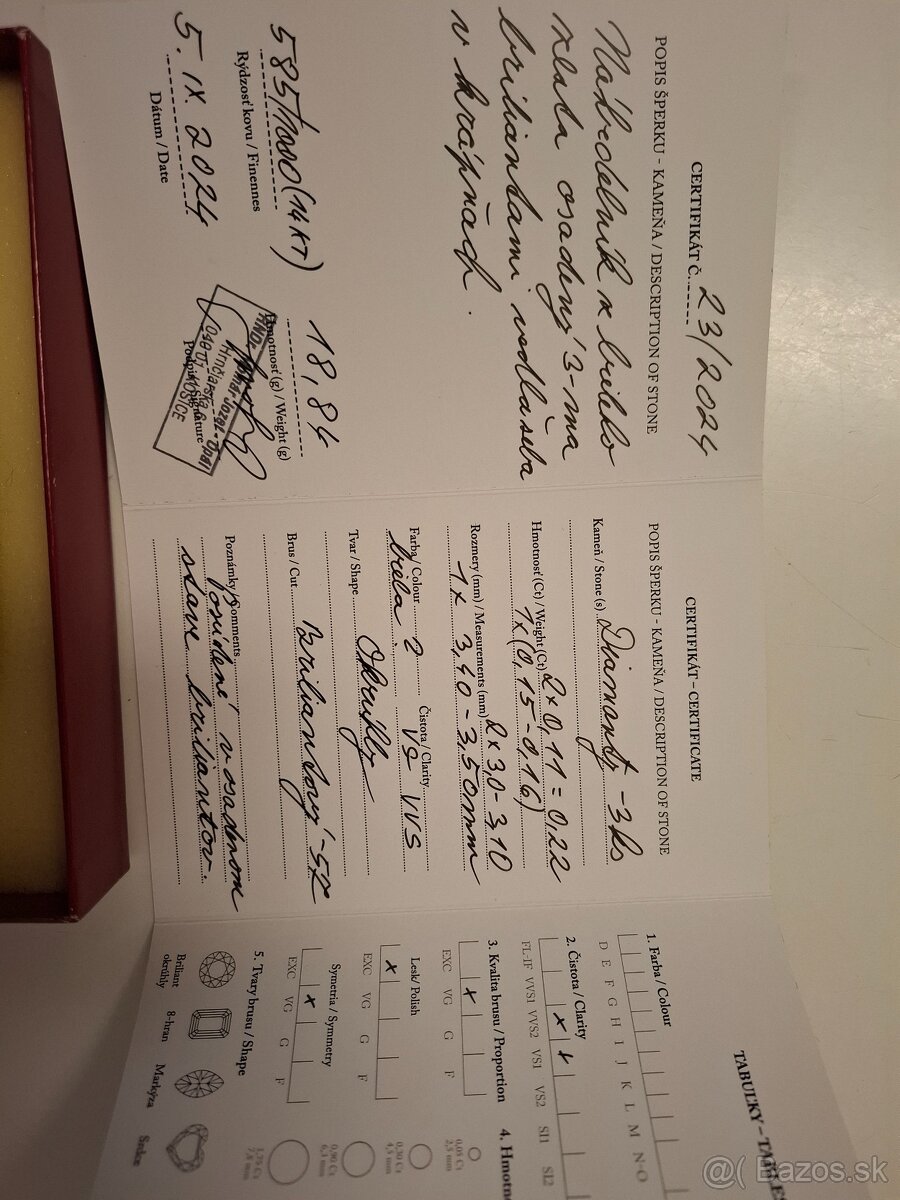 CERTIFIKÁT Č. 23/2024
POPIS ŠPERKU - KAMEŇA / DESCRIPTION OF STONE
Náhrdelník z bieleho
zlata osadený 3-ma
briliantami vedľa seba
v krápňach.
585/1000 (14KT)
Rýdzosť kovu / Finennes
18,84
Hmotnosť (g) / Weight (g)
5. IX. 2024
Dátum / Date
Podpis / Signature
Hrnčiarska 6
KOŠICE
CERTIFIKÁT – CERTIFICATE
POPIS ŠPERKU - KAMEŇA / DESCRIPTION OF STONE
Kameň / Stone (s) Diamanty - 3ks
2 x 0,11 = 0,22
Hmotnosť (Ct) / Weight (Ct) 1x (0,15 - 0,16)
Rozmery (mm) / Measurements (mm) 2 x 3,0 - 3,10
1 x 3,40 - 3,50mm
Farba / Colour Čistota / Clarity
biela VS VVS
Tvar / Shape Okrúhly
Brus / Cut Briliantový - 57
Poznámky / Comments
Posúdené v osadenom
stave briliantov.
TABUĽKY – TABLES
1. Farba / Colour
D E F G H I J K L M N-O
2. Čistota / Clarity
x x
FL-IF VVS1 VVS2 VS1 VS2 SI1 SI2
3. Kvalita brusu / Proportion
x
EXC VG G F
Lesk / Polish
x
EXC VG G F
Symetria / Symmetry
x
EXC VG G F
4. Hmotn
0,05 Ct
2,5 mm
0,30 Ct
4,5 mm
0,90 Ct
6,3 mm
1,75 Ct
7,8 mm
5. Tvary brusu / Shape
Briliant
okrúhly
8-hran
Markýza
Srdce
@( Bazos.sk